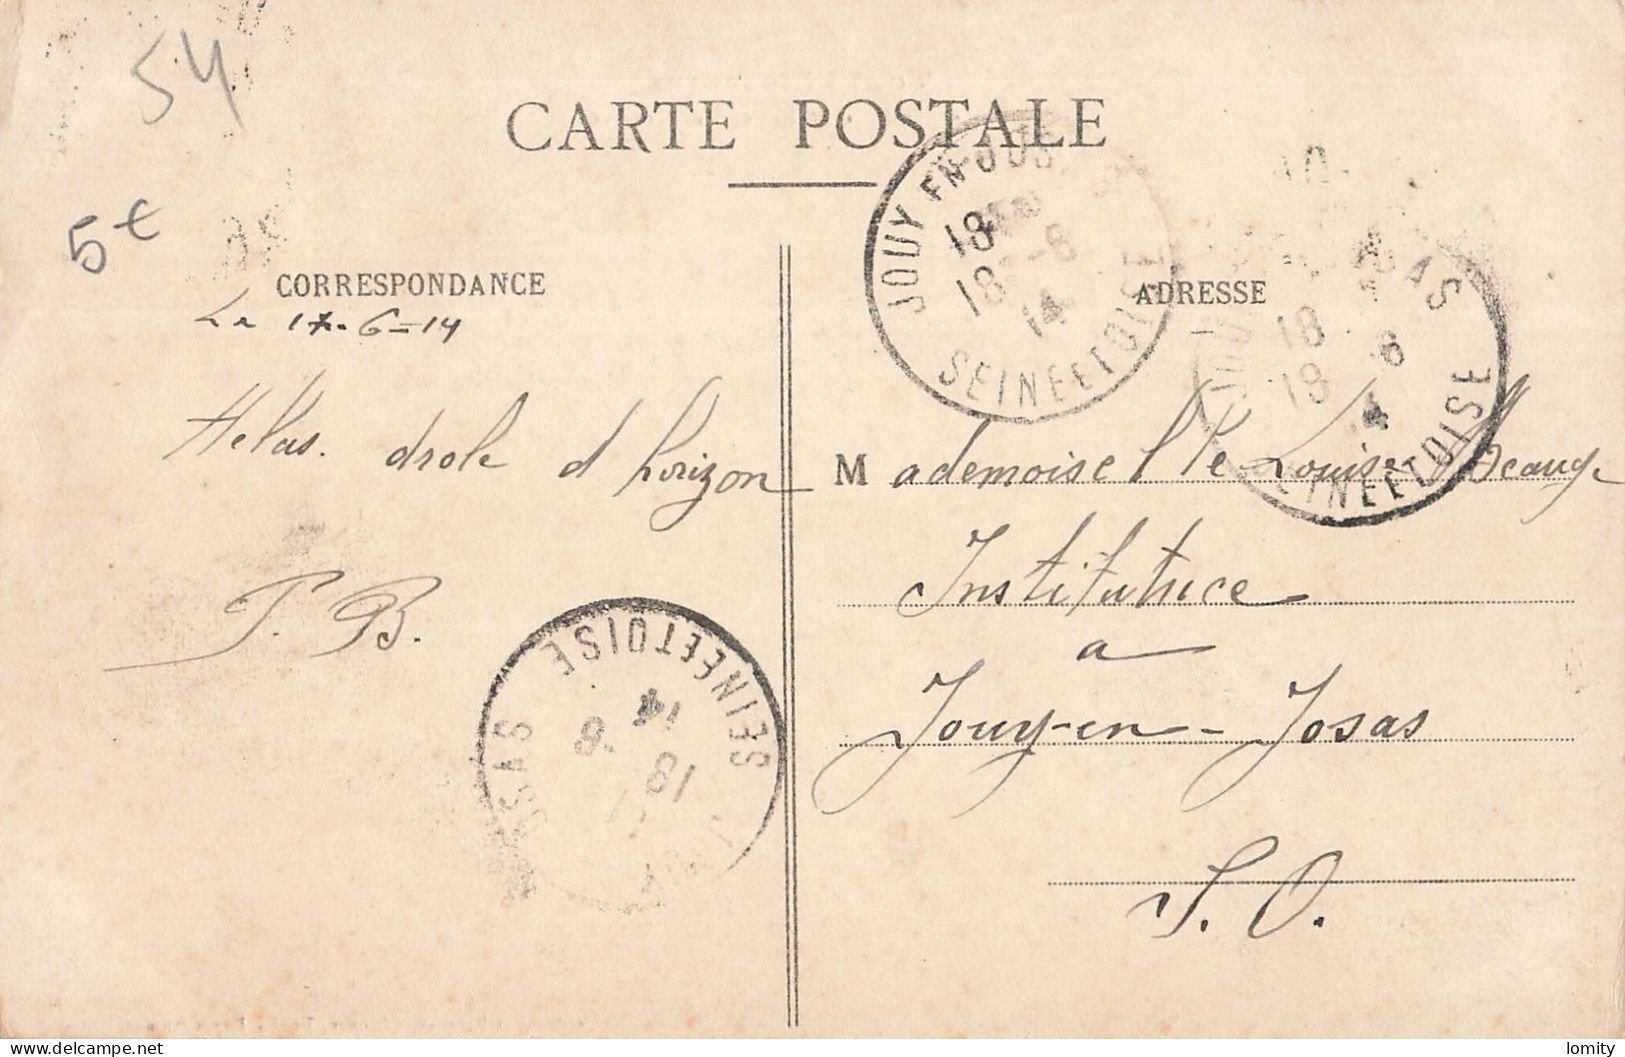 54
5€
CARTE POSTALE
CORRESPONDANCE
Le 17-6-14
Helas. drole d horizon
P. B.
ADRESSE
Mademoiselle Louise
Institutrice
a
Jouy-en-Josas
S. O.
JOUY EN JOSAS
18
18 -6
14
SEINE ET OISE
JOSAS
18
18 6
14
SEINE ET OISE
SEINE ET OISE
14
18 6
JOUY SAS
delcampe.net
lomity